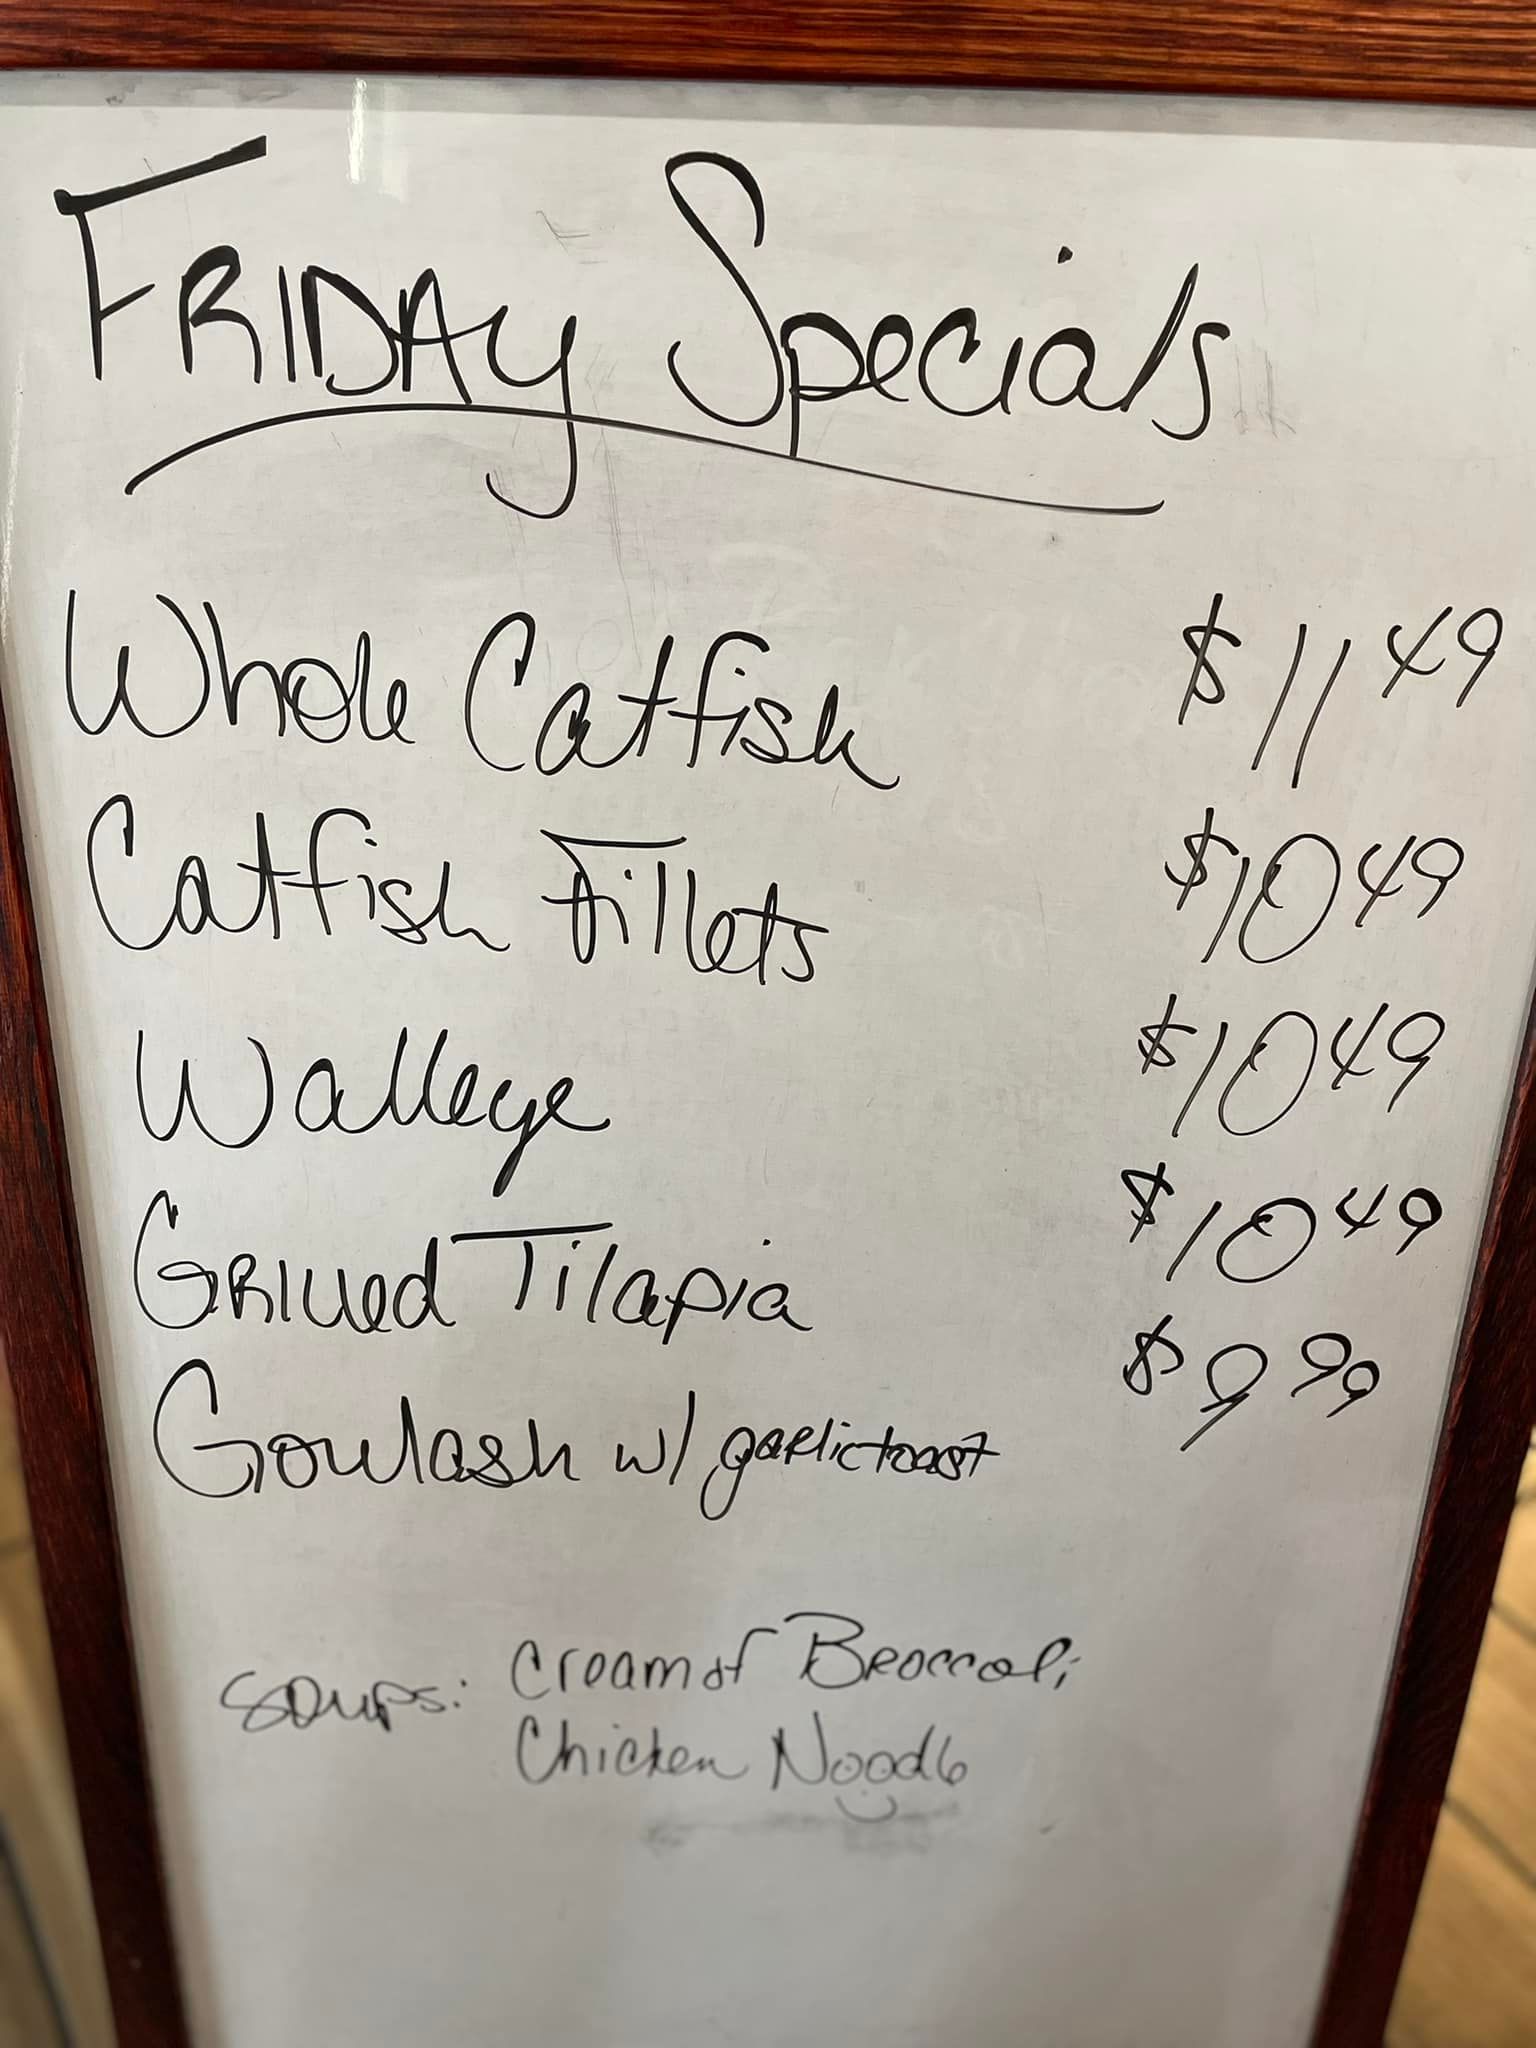 FRIDAY Specials
Whole Catfish $11 49
Catfish Fillets $10 49
Walleye $10 49
GRilled Tilapia $10 49
Goulash w/ garlic toast $9 99
Soups: Cream of Broccoli
Chicken Noodle